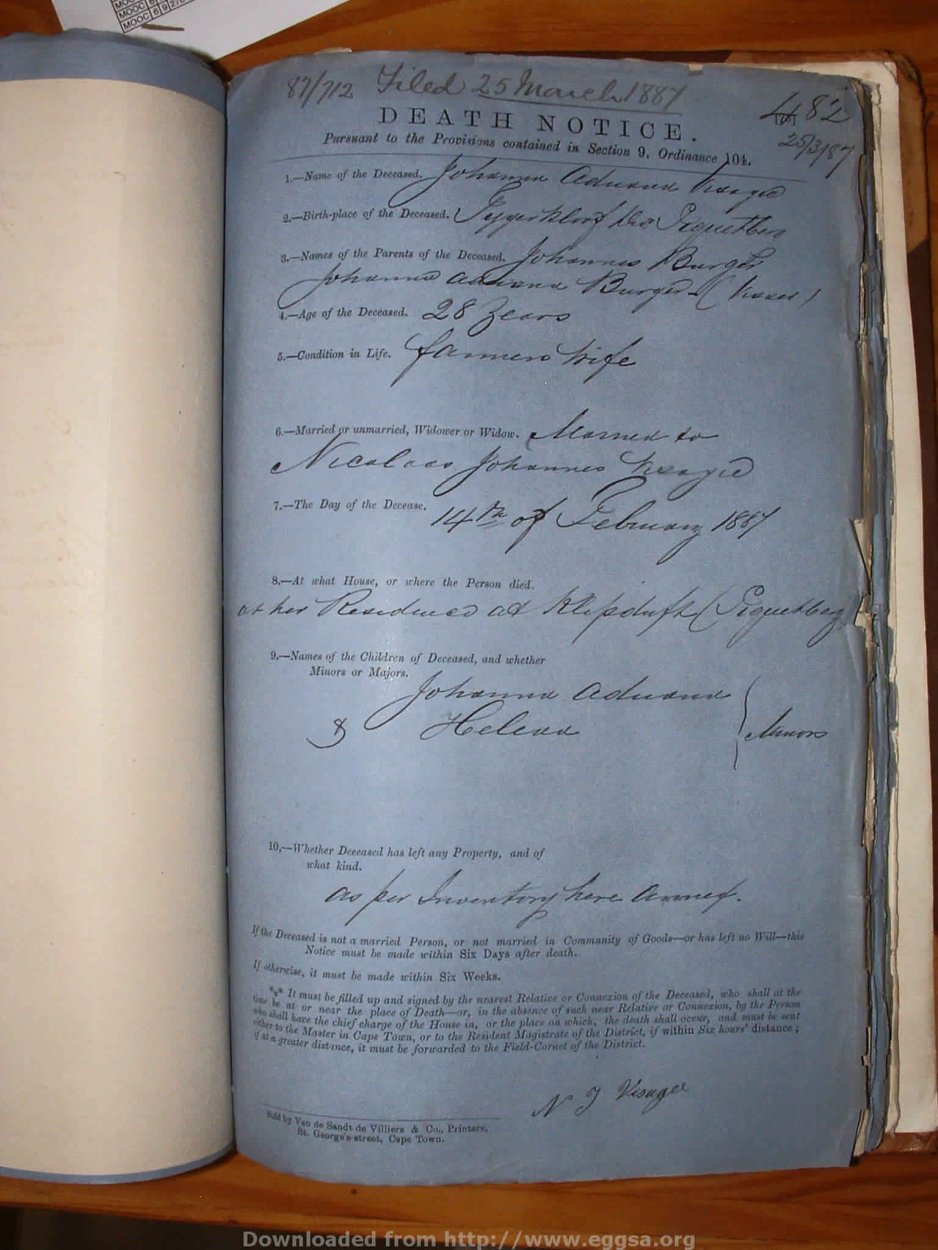 MOOC
MOOC
MOOC 6 9 2
87/712 Filed 25 March 1887
482
25/3/87
DEATH NOTICE.
Pursuant to the Provisions contained in Section 9, Ordinance 104.
1.—Name of the Deceased. Johanna Adriana Visagie
2.—Birth-place of the Deceased. Piquetberg
3.—Names of the Parents of the Deceased. Johannes Burger
Johanna Adriana Burger
4.—Age of the Deceased. 28 Years
5.—Condition in Life. farmers Wife
6.—Married or unmarried, Widower or Widow. Married to
Nicolaas Johannes Visagie
7.—The Day of the Decease. 14th of February 1887
8.—At what House, or where the Person died.
at her Residence at Klipdrift (Piquetberg)
9.—Names of the Children of Deceased, and whether
Minors or Majors.
Johanna Adriana
& Helena } Minors
10,—Whether Deceased has left any Property, and of
what kind.
as per Inventory here annex.
If the Deceased is not a married Person, or not married in Community of Goods—or has left no Will—this
Notice must be made within Six Days after death.
If otherwise, it must be made within Six Weeks.
*** It must be filled up and signed by the nearest Relative or Connexion of the Deceased, who shall at the
time be at or near the place of Death—or, in the absence of such near Relative or Connexion, by the Person
who shall have the chief charge of the House in, or the place on which, the death shall occur, and must be sent
either to the Master in Cape Town, or to the Resident Magistrate of the District, if within Six hours' distance;
if at a greater distance, it must be forwarded to the Field-Cornet of the District.
N J Visagie
Sold by Van de Sandt de Villiers & Co., Printers,
St. George's-street, Cape Town.
Downloaded from http://www.eggsa.org